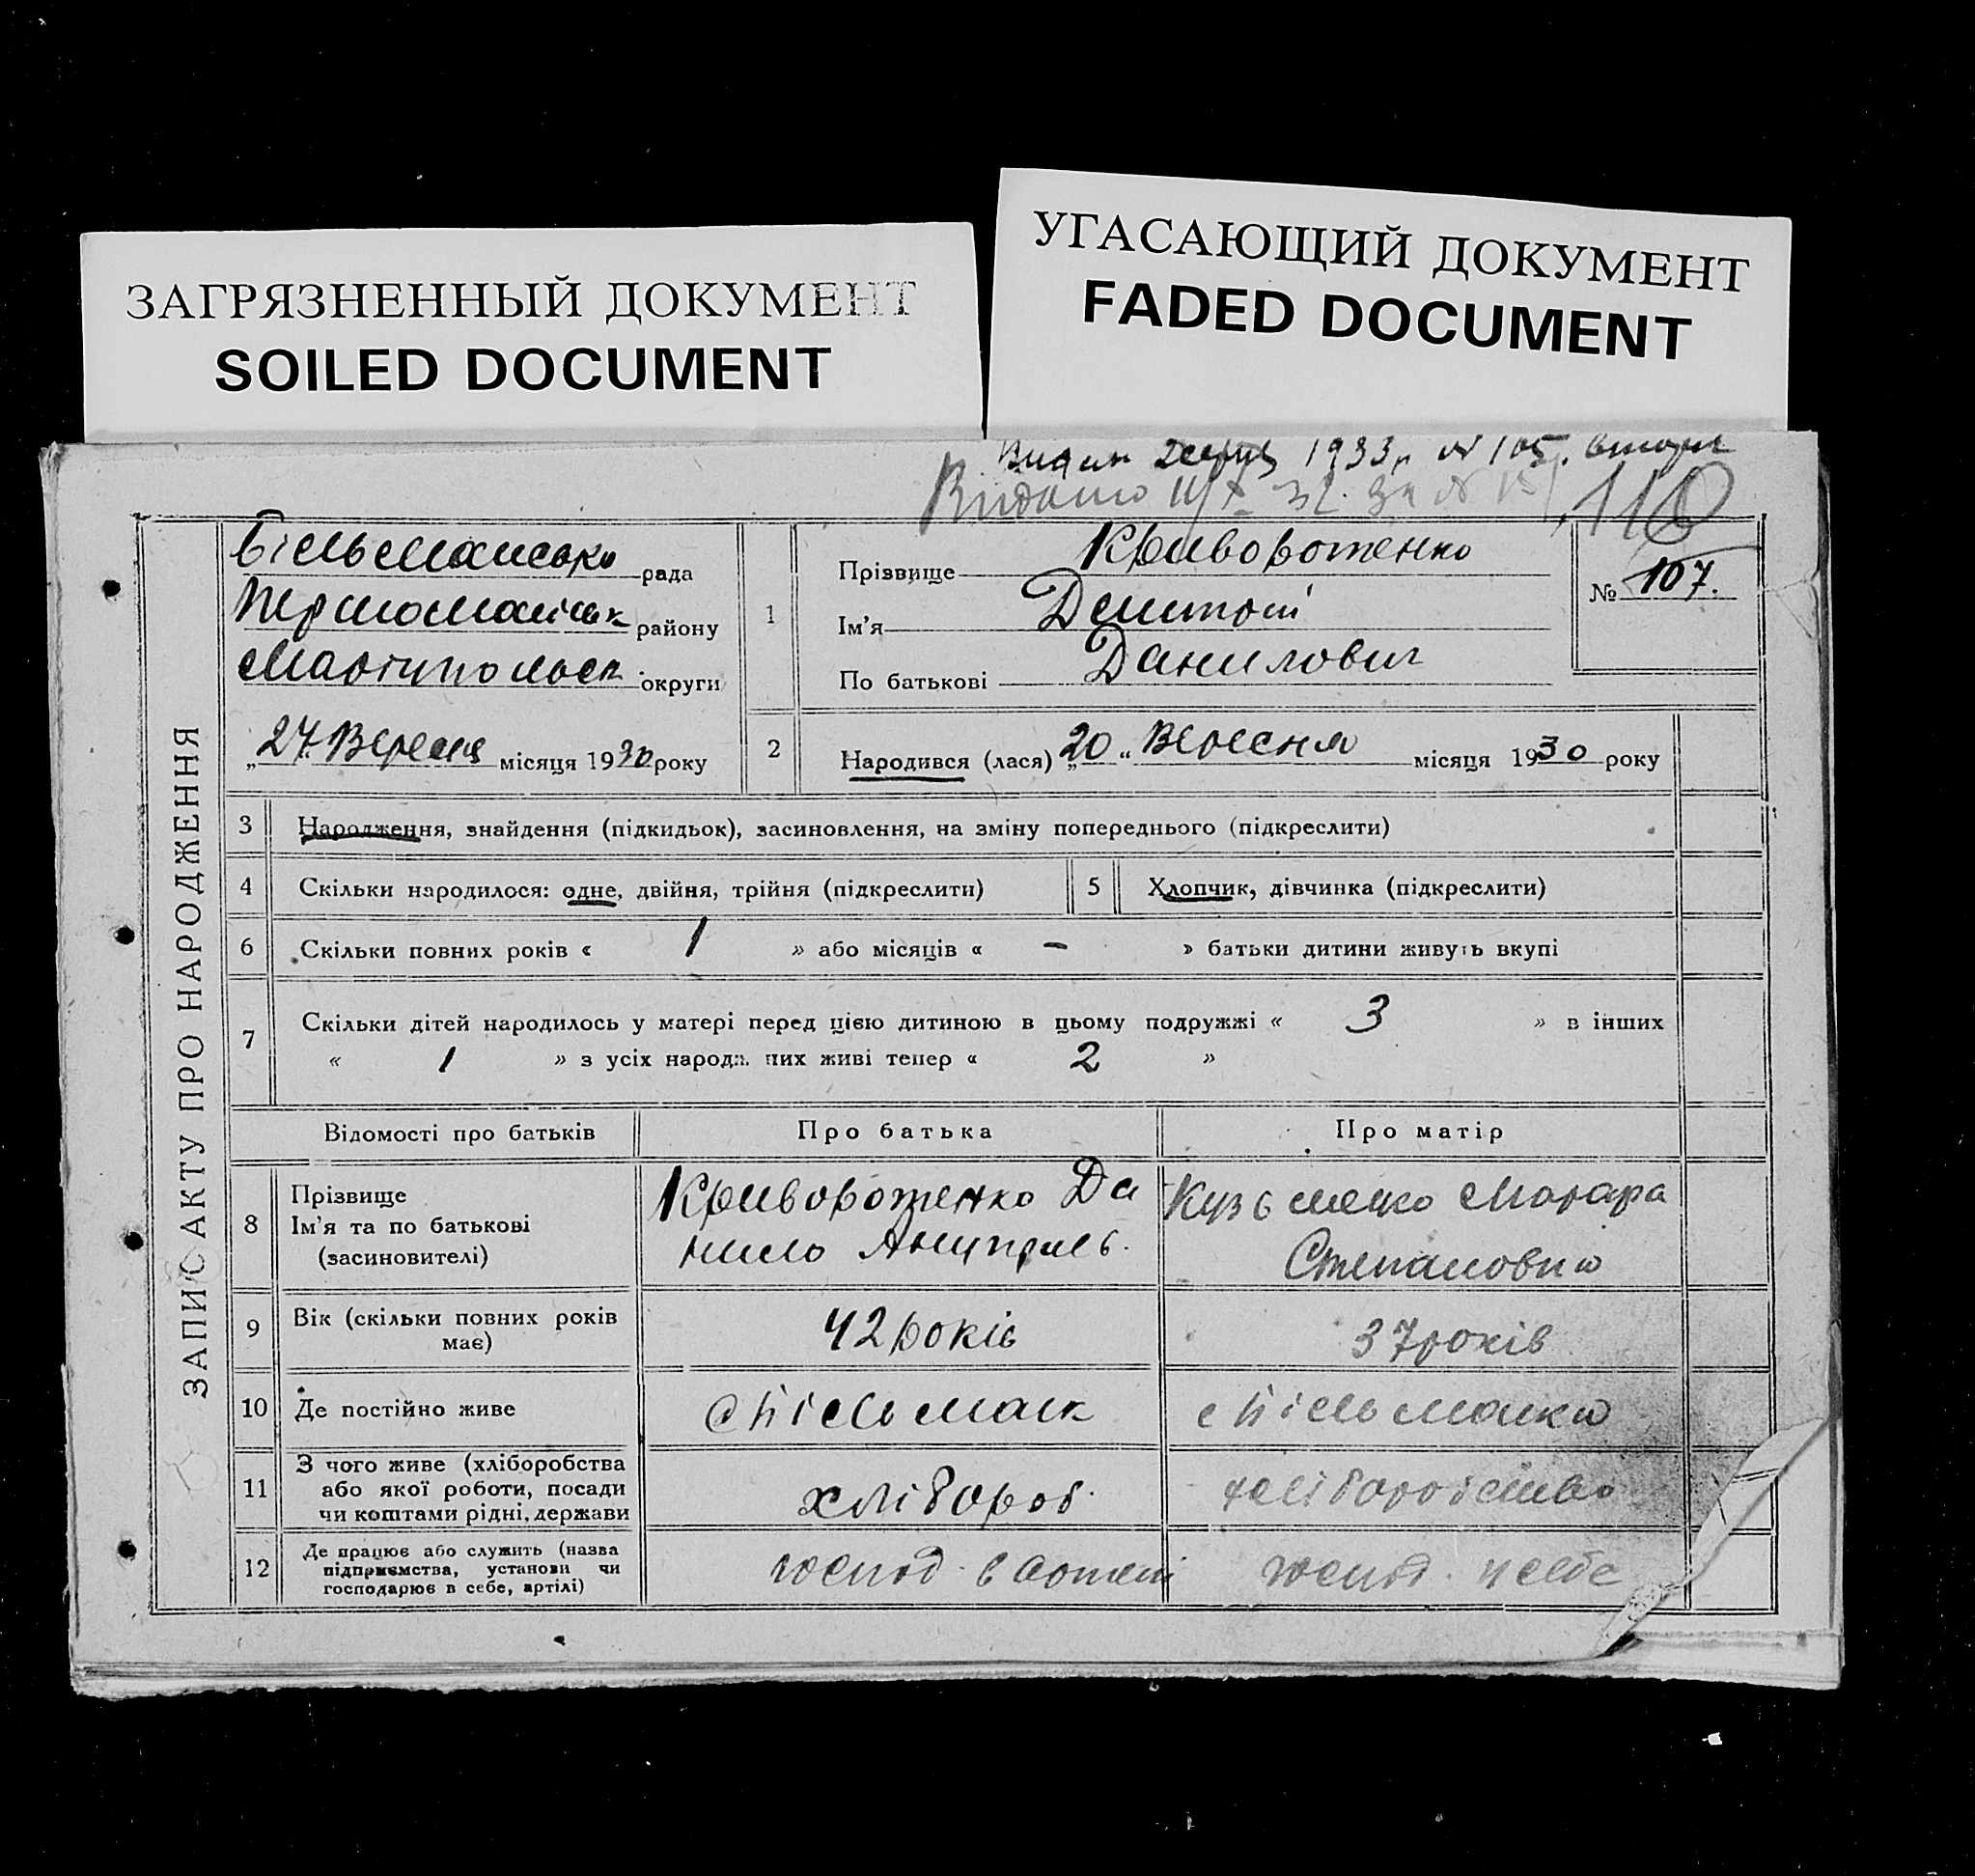 ЗАГРЯЗНЕННЫЙ ДОКУМЕНТ
SOILED DOCUMENT
УГАСАЮЩИЙ ДОКУМЕНТ
FADED DOCUMENT
1933р № 105.
Видано
110
ЗАПИС АКТУ ПРО НАРОДЖЕННЯ
рада
району
округи
„27„ Вересня місяця 1930 року
1
Прізвище Криворотенко
Ім'я Дмитрій
По батькові Данилович
№ 107.
2 Народився (лася) „20“ Вересня місяця 1930 року
3 Народження, знайдення (підкидьок), засиновлення, на зміну попереднього (підкреслити)
4 Скільки народилося: одне, двійня, трійня (підкреслити)
5 Хлопчик, дівчинка (підкреслити)
6 Скільки повних років « 1 » або місяців « – » батьки дитини живуть вкупі
7 Скільки дітей народилось у матері перед цією дитиною в цьому подружжі « 3 » в інших
« 1 » з усіх народж них живі тепер « 2 »
Відомості про батьків Про батька Про матір
8 Прізвище
Ім'я та по батькові
(засиновителі)
Криворотенко Да
нило
Кузьменко
Степановна
9 Вік (скільки повних років
має)
42 років
37 років
10 Де постійно живе
11 З чого живе (хліборобства
або якої роботи, посади
чи коштами рідні, держави
хлібороб.
хліборобство
12 Де працює або служить (назва
підприємства, установи чи
господарює в себе, артілі)